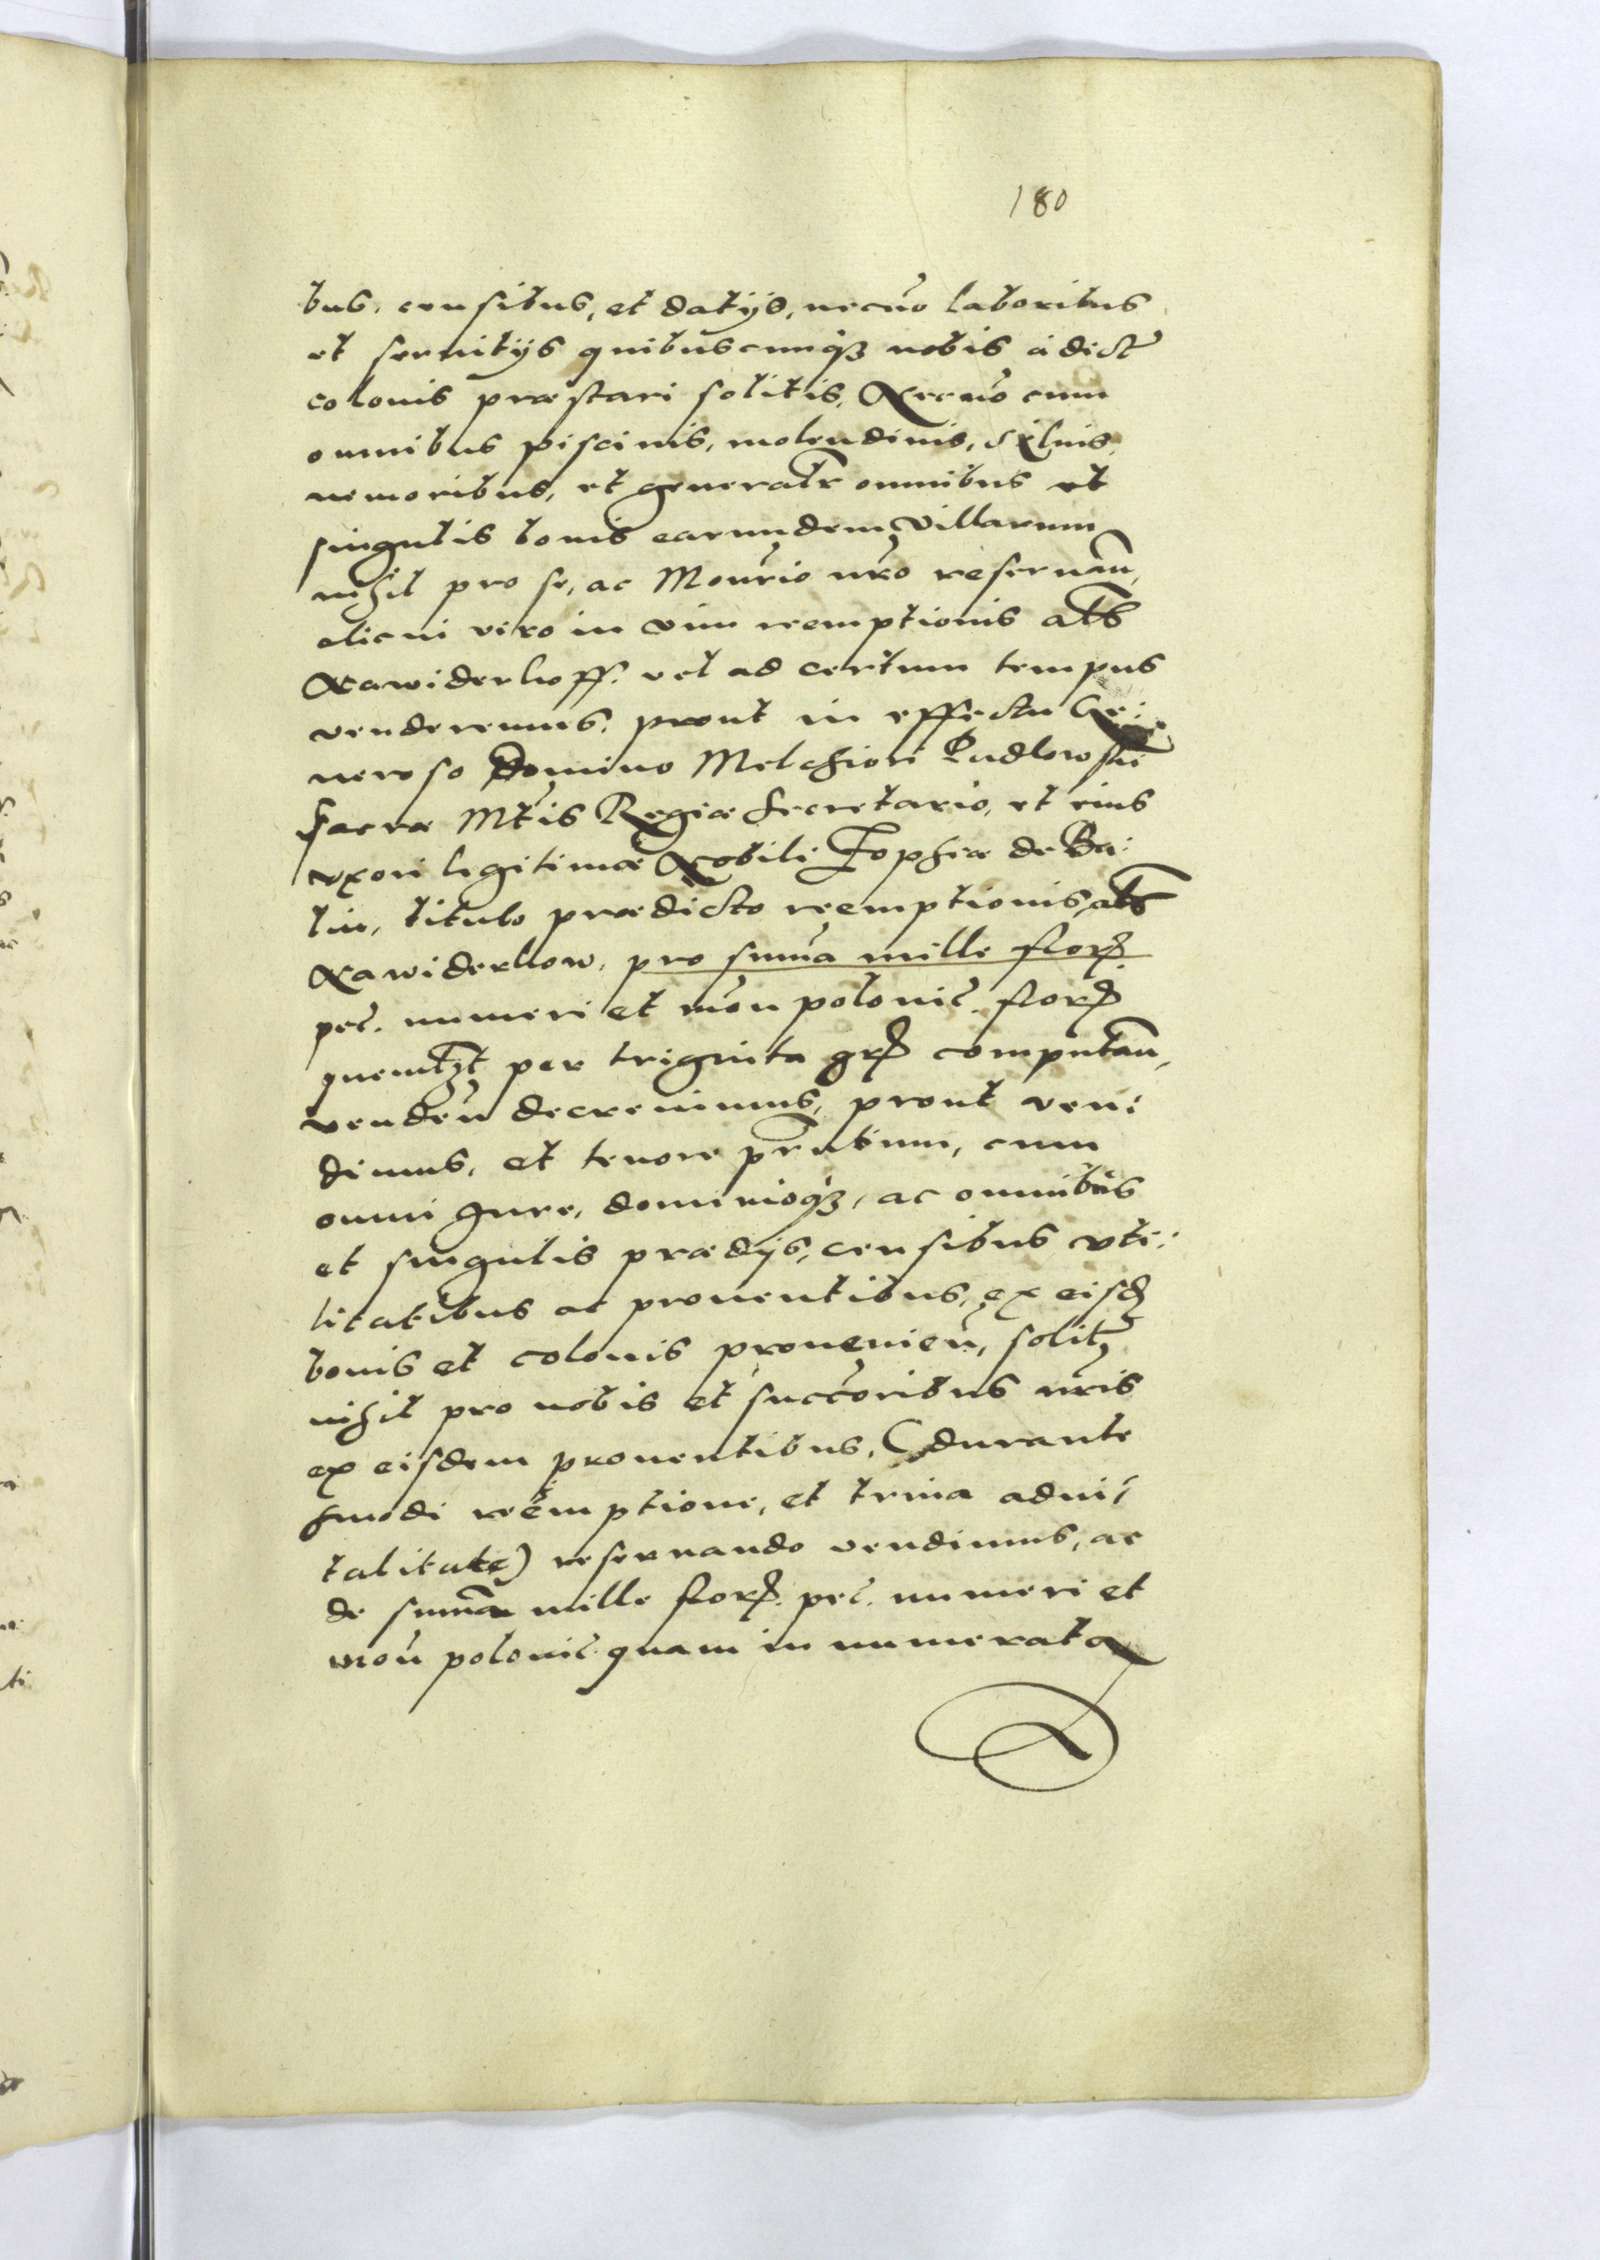 180
bus, censibus, et datijs, necno laboribus
et seruitijs quibuscumqꝫ nobis à dict
colonis præstari solitis, Necno cum
omnibus piscinis, molendinis, syluis,
nemoribus, et generatr omnibus et
singulis bonis earundem villarum
nihil pro se, ac Monrio nro reseruan,
alicui viro in vim reemptionis als
Nawiderkoff. vel ad certum tempus
venderemus, prout in effectu Ge:
neroso Domino Melchiori Pudlowski
Sacræ Mtis Regiæ Secretario, et eius
vxori legitimæ Nobili Zophiæ de Ba:
lin, titulo prædicto reemptionis, als
Nawiderkow, pro suma mille flor
pec. numeri et mon polonic. flor
quemlzt per triginta gr computan,
venden decreuimus, prout ven:
dimus, et tenore pntium, cum
omni Jure, dominioqꝫ, ac omnibus
et singulis prædijs, censibus vti:
litatibus ac prouentibus, ex eisd
bonis et colonis prouenien, solit
nihil pro nobis et succoribus nris
ex eisdem prouentibus, (durante
hmodi reemptione, et trina aduii
talitate) reseruando vendimus, ac
de suma mille flor. pec. numeri et
mon polonic. quam in numerata